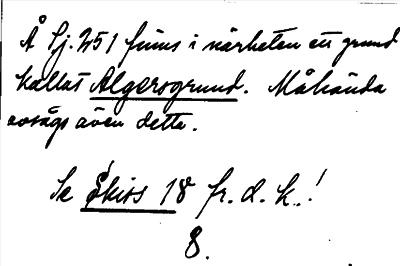 Å Sj. 251 finns i närheten ett grund
kallat Algersgrund. Måhända
avsågs även detta.
Se skiss 18 fr. d. k.!
8.